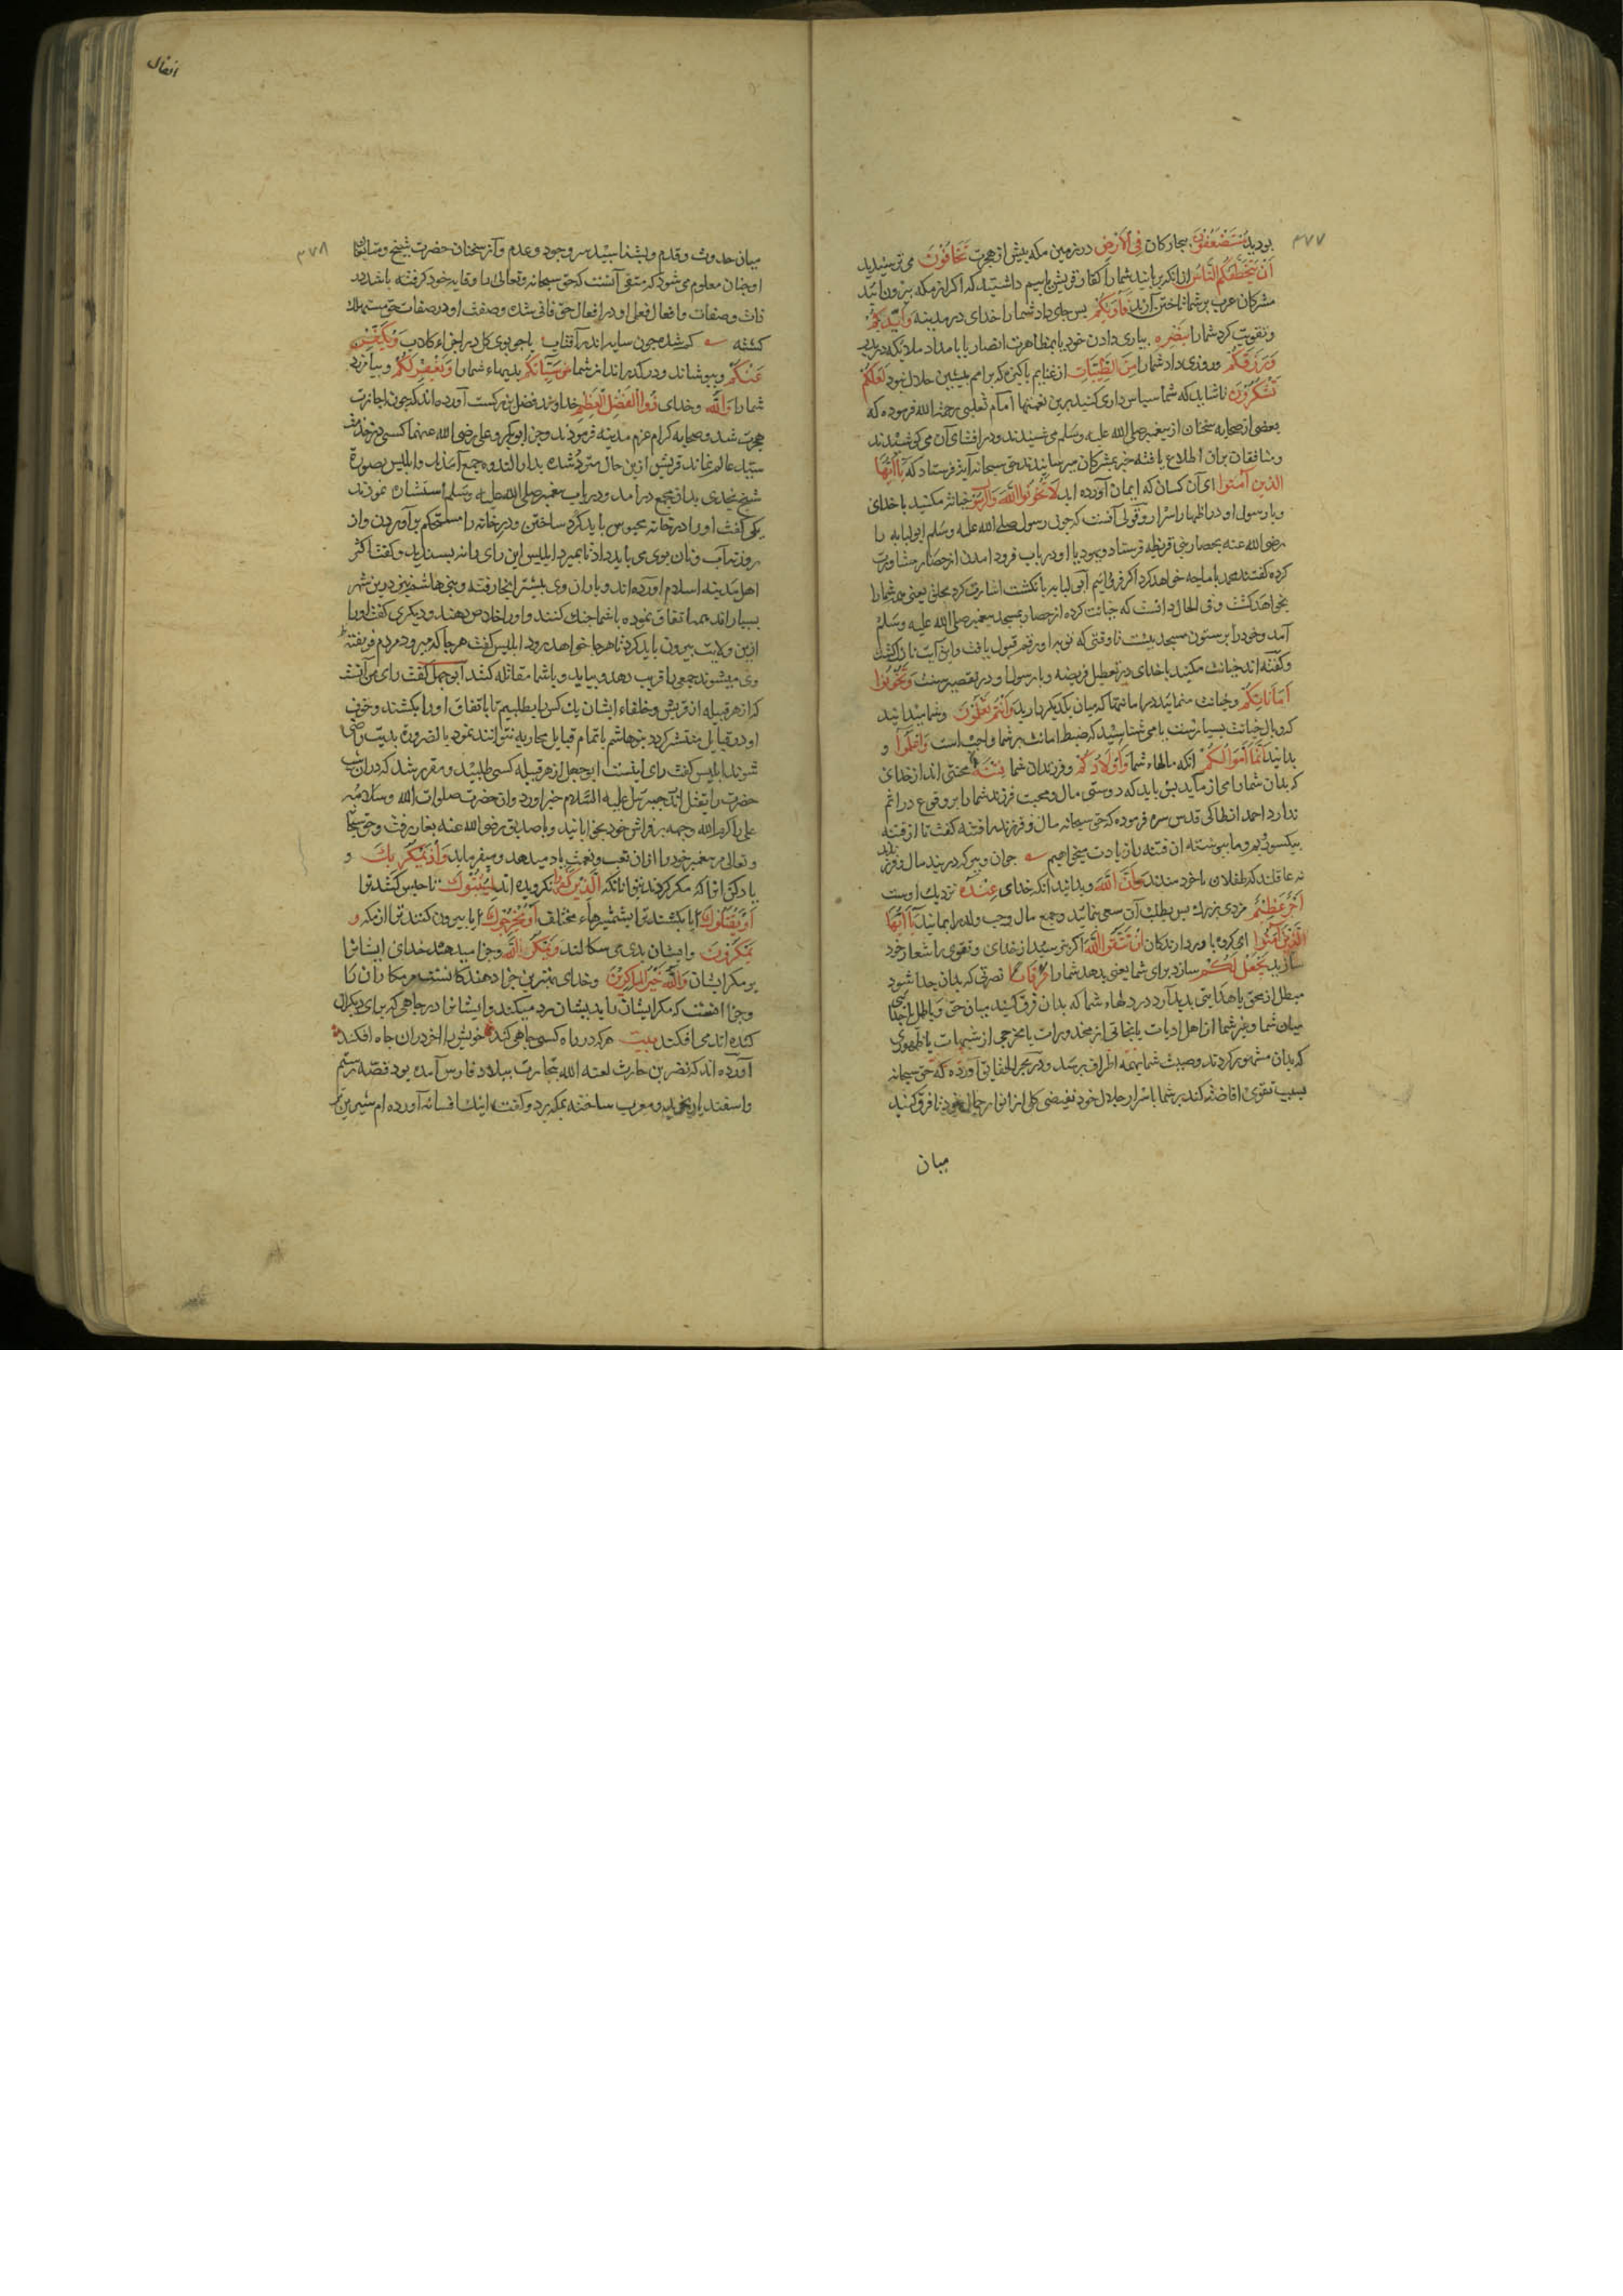 ۳۷۷
بودید مُسْتَضْعَفُونَ بیجارکان فِی الْاَرْضِ در زمین مکه بیش از هجرت تَخَافُونَ می ترسیدید
اَنْ یَتَخَطَّفَکُمُ النَّاسُ از انکه بربایند شمارا کفار قریش یا بیم داشتید که اکر از مکه بیرون ائید
مشرکان عرب بر شما تاختن آرند فَاٰوٰیکُمْ بس جای داد شمارا خدای در مدینه وَاَیَّدَکُمْ
وتقویت کرد شمارا بِنَصْرِهٖ بیاری دادن خود یا بمظاهرت انصار یا بامداد ملایکه در بدر
وَرَزَقَکُمْ وروزی داد شمارا مِنَ الطَّیِّبَاتِ از غنایم باکیزه که بر امم بیشین حلال نبود لَعَلَّکُمْ
تَشْکُرُونَ تا شاید که شما سباس داری کنید برین نعمتها امام ثعلبی رحمة الله فرموده که
بعضی از صحابه سخنان از بیغمبر صلی الله علیه وسلم می شنیدند ودر افشای آن می کوشیدند
ومنافقان بران اطلاع یافته خبر بمشرکان میرسانیدند حق سبحانه آیة فرستاد که یَا اَیُّهَا
الَّذِینَ اٰمَنُوا ای آن کسان که ایمان آورده اید لَا تَخُونُوا اللّٰهَ وَالرَّسُولَ خیانت مکنید با خدای
وبا رسول او در اظهار اسرار وقولی آنست که جون رسول صلی الله علیه وسلم ابولبابه را
رضی الله عنه بحصار بنی قریظه فرستاد ویهود با او در باب فرود امدن از حصار مشاورت
کرده کفتند محمد با ما جه خواهد کرد اکر فرود آئیم ابولبابه بانکشت اشارت کرد بحلق یعنی همه شمارا
بخواهد کشت وفی الحال دانست که خیانت کرده از حصار بمسجد بیغمبر صلی الله علیه وسلم
آمد وخودرا بر ستون مسجد ببست تا وقتی که توبه او رقم قبول یافت واین آیت نازل کشت
وکفته اند خیانت مکنید با خدای در تعطیل فریضه وبا رسول او در تقصیر سنت وَتَخُونُوا
اَمَانَاتِکُمْ وخیانت منمائید در امانتها که میان یکدیکر دارید وَاَنْتُمْ تَعْلَمُونَ وشما میدانید
که وبال خیانت بسیارست یا می شناسید که ضبط امانت بر شما واجب است وَاعْلَمُوا و
بدانید اَنَّمَا اَمْوَالُکُمْ انکه مالهاء شما وَاَوْلَادُکُمْ وفرزندان شما فِتْنَةٌ محنتی اند از خدای
که بدان شمارا می ازماید بس باید که دوستی مال ومحبت فرزند شمارا بر وقوع در اثم
ندارد احمد انطاکی قدس سره فرموده که حق سبحانه مال وفرزند را فتنه کفت تا از فتنه
بیکسو رویم وما بیوسته ان فتنه را زیادت میخواهیم جوان وبیر که دربند مال وفرزند
نه عاقلند که طفلان ناخردمندند وَاَنَّ اللّٰهَ وبدانید انکه خدای عِنْدَهُ نزدیک اوست
اَجْرٌ عَظِیمٌ مزدی بزرک بس بطلب آن سعی نمائید وجمع مال وحب ولد را بمانید یَا اَیُّهَا
الَّذِینَ اٰمَنُوا ای کروه باوردارندکان اِنْ تَتَّقُوا اللّٰهَ اکر بترسید از خدای وتقوی را شعار خود
سازید یَجْعَلْ لَکُمْ سازد برای شما یعنی بدهد شمارا فُرْقَانًا نصرتی که بدان جدا شود
مبطل از محق یا هدایتی بدید آرد در دلهاء شما که بدان فرق کنید میان حق وباطل
میان شما وغیر شما از اهل ادیان یا نجاتی از محذورات یا مخرجی از شبهات یا ظهوری
که بدان مشهور کردند وصیت شما بهمه اطراف برسد ودر بحر الحقایق آورده که حق سبحانه
بسبب تقوی افاضه کند بر شما باسرار جلال خود فیضی کلی از انوار جمال خود تا فرق کنید
میان
انفال
۳۷۸
میان حدوث وقدم وبشناسید سر وجود وعدم وآز سخنان حضرت شیخ ومتابعان
او جنان معلوم می شود که متقی آنست که حق سبحانه وتعالی را وقایه خود کرفته باشد در
ذات وصفات وافعال فعل او در افعال حق فانی شده وصفت او در صفات حق مستهلک
کشته کم شده جون سایه اندر آفتاب یا جو بوی کل در اجزاء کلاب وَیُکَفِّرْ
عَنْکُمْ وبپوشاند ودر کذراند از شما سَیِّاٰتِکُمْ بدیهاء شمارا وَیَغْفِرْ لَکُمْ وبیامرزد
شمارا وَاللّٰهُ وخدای ذُو الْفَضْلِ الْعَظِیمِ خداوند فضل بزرکست آورده اند که جون اجازت
هجرت شد وصحابه کرام عزم مدینه فرمودند وجز ابوبکر وعلی رضی الله عنهما کسی در خدمت
سید عالم نماند قریش ازین حال متردد شده بدار الندوه جمع آمدند وابلیس بصورة
شیخ نجدی بدان مجمع درامد ودر باب بیغمبر صلی الله علیه وسلم استشاره نمودند
یکی کفت اورا در خانه محبوس باید کرد ساختن ودر خانه را مستحکم بر آوردن واز
روزنه آب ونان بوی می باید داد تا بمیرد ابلیس این رای را نه بسندید وکفت اکثر
اهل مدینه اسلام آورده اند ویاران وی بیشتر انجا رفته وبنی هاشم نیز درین شهر
بسیارند همه اتفاق نموده با شما جنک کنند واورا خلاص دهند ودیکری کفت اورا
ازین ولایت بیرون باید کرد تا هر جا خواهد رود ابلیس کفت هر جا که میرود مردم فریفتهٔ
وی میشوند جمعی را فریب دهد وبیاید وبا شما مقاتله کند ابوجهل کفت رای من آنست
که از هر قبیله از قریش وخلفاء ایشان یک کس را بطلبیم تا باتفاق اورا بکشند وخون
او در قبایل منتشر کردد بنوهاشم با تمام قبایل محاربه نتوانند نمود بالضرورة بدیت راضی
شوند ابلیس کفت رای اینست ابوجهل از هر قبیله کسی طلبید ومقرر شد که دران شب
حضرت را بقتل ارند جبرئیل علیه السلام خبر اورد وان حضرت صلوات الله وسلامه
علی را کرم الله وجهه بر فراش خود بخوابانید وبا صدیق رضی الله عنه بغار برفت وحق سبحانه
وتعالی مر بیغمبر خودرا ازان تعب ونعمت یاد میدهد ومیفرماید وَاِذْ یَمْکُرُ بِکَ و
یاد کن انرا که مکر کردند بتو انانکه الَّذِینَ کَفَرُوا نکرویده اند لِیُثْبِتُوکَ تا حبس کنند ترا
اَوْ یَقْتُلُوکَ یا بکشند ترا بشمشیرهاء مختلف اَوْ یُخْرِجُوکَ یا بیرون کنند ترا از مکه وَ
یَمْکُرُونَ وایشان بدی می سکالند وَیَمْکُرُ اللّٰهُ وجزا میدهد خدای ایشانرا
بر مکر ایشان وَاللّٰهُ خَیْرُ الْمَاکِرِینَ وخدای بهترین جزا دهندکانست مر مکاران را
وجزا انست که مکر ایشان را بدیشان رد میکند وایشانرا در جاهی که برای دیکران
کنده اند می افکند بیت هر که در راه کسی جاهی کند خویش را اخر دران جاه افکند
آورده اند که نضر بن حارث لعنه الله بتجارت ببلاد فارس آمده بود قصّه رستم
واسفندیار بخرید ومعرب ساخته بمکه برد وکفت اینک افسانه آورده ام شیرین تر